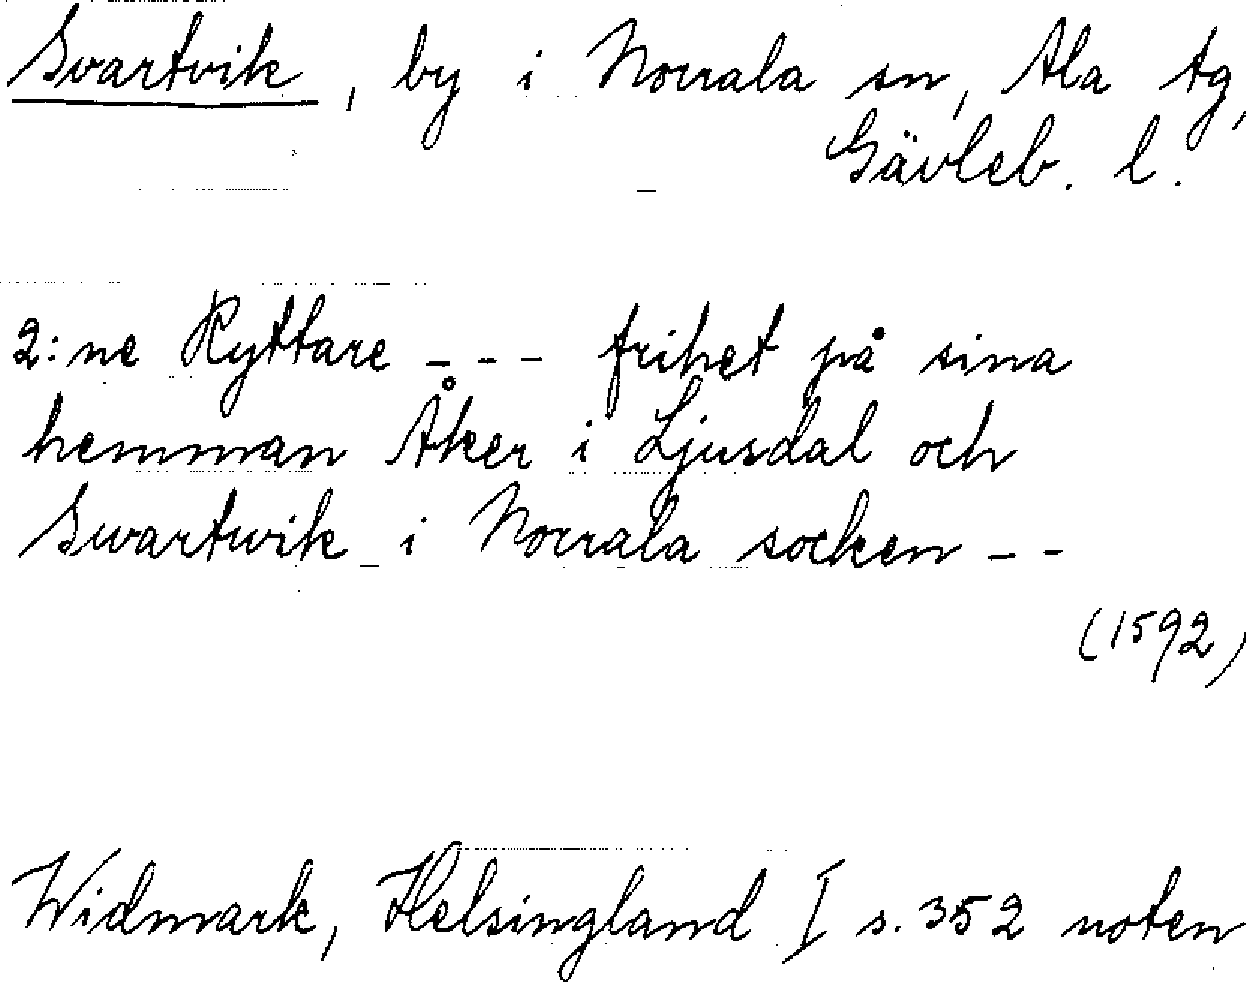 Svartvik, by i Norrala sn, Ala tg,
Gävleb. l.
2:ne Ryttare --- frihet på sina
hemman Åker i Ljusdal och
Swartwik i Norrala socken --
(1592)
Widmark, Helsingland I s. 352 noten